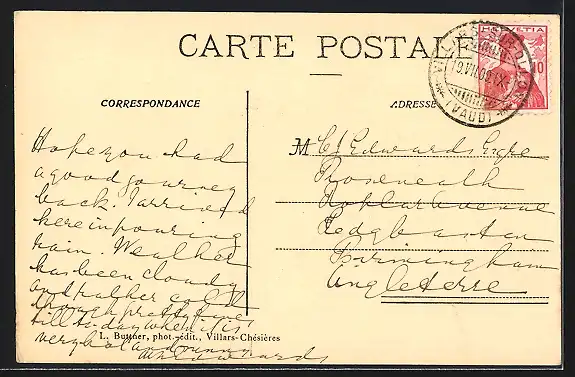 CARTE POSTALE
HELVETIA
10
VILLARS SUR OLLON
19.VII.09.IX
(VAUD)
CORRESPONDANCE
ADRESSE
Hope you had
a good journey
back. I arrived
here in pouring
rain. Weather
has been cloudy
and rather cold
though pretty fine
till to-day when it is
very hot and sunny
L. Buttner, phot.-édit., Villars-Chésières
Edwards
M C J Edwards Esqre
Roseneath
Poplar Avenue
Edgbaston
Birmingham
Angleterre